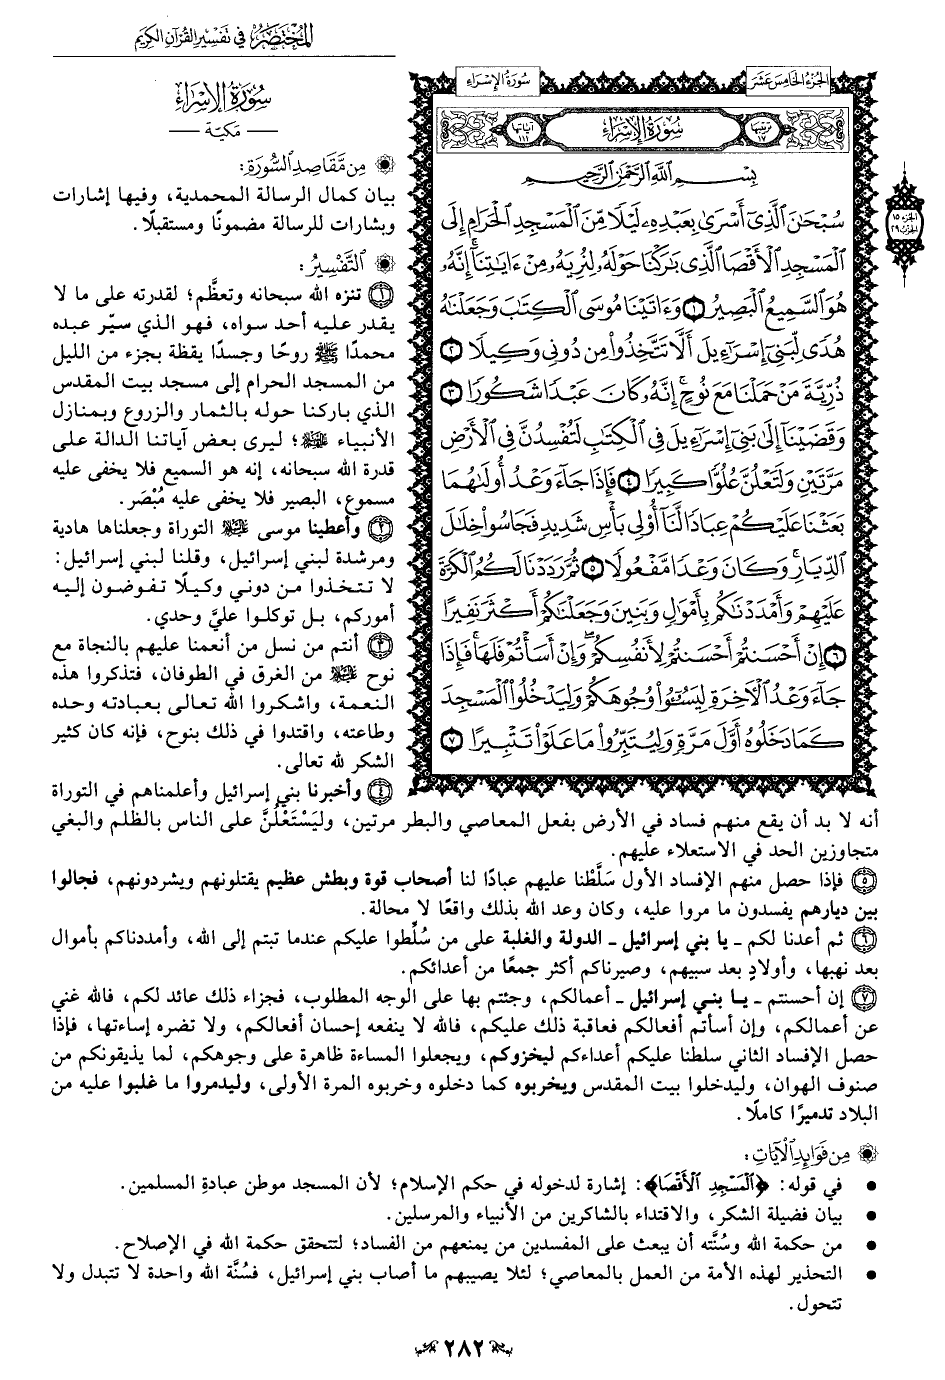 المُخْتَصَرُ في تَفْسِيرِ القُرْآنِ الكَرِيمِ
الجُزْءُ الخَامِسَ عَشَرَ
سُورَةُ الإِسْرَاءِ
تَرْتِيبُهَا ١٧
سُورَةُ الإِسْرَاءِ
آيَاتُهَا ١١١
بِسْمِ اللَّهِ الرَّحْمَٰنِ الرَّحِيمِ
سُبْحَٰنَ ٱلَّذِىٓ أَسْرَىٰ بِعَبْدِهِۦ لَيْلًا مِّنَ ٱلْمَسْجِدِ ٱلْحَرَامِ إِلَى
ٱلْمَسْجِدِ ٱلْأَقْصَا ٱلَّذِى بَٰرَكْنَا حَوْلَهُۥ لِنُرِيَهُۥ مِنْ ءَايَٰتِنَآ ۚ إِنَّهُۥ
هُوَ ٱلسَّمِيعُ ٱلْبَصِيرُ ١ وَءَاتَيْنَا مُوسَى ٱلْكِتَٰبَ وَجَعَلْنَٰهُ
هُدًى لِّبَنِىٓ إِسْرَٰٓءِيلَ أَلَّا تَتَّخِذُوا۟ مِن دُونِى وَكِيلًا ٢
ذُرِّيَّةَ مَنْ حَمَلْنَا مَعَ نُوحٍ ۚ إِنَّهُۥ كَانَ عَبْدًا شَكُورًا ٣
وَقَضَيْنَآ إِلَىٰ بَنِىٓ إِسْرَٰٓءِيلَ فِى ٱلْكِتَٰبِ لَتُفْسِدُنَّ فِى ٱلْأَرْضِ
مَرَّتَيْنِ وَلَتَعْلُنَّ عُلُوًّا كَبِيرًا ٤ فَإِذَا جَآءَ وَعْدُ أُولَىٰهُمَا
بَعَثْنَا عَلَيْكُمْ عِبَادًا لَّنَآ أُو۟لِى بَأْسٍ شَدِيدٍ فَجَاسُوا۟ خِلَٰلَ
ٱلدِّيَارِ ۚ وَكَانَ وَعْدًا مَّفْعُولًا ٥ ثُمَّ رَدَدْنَا لَكُمُ ٱلْكَرَّةَ
عَلَيْهِمْ وَأَمْدَدْنَٰكُم بِأَمْوَٰلٍ وَبَنِينَ وَجَعَلْنَٰكُمْ أَكْثَرَ نَفِيرًا
٦ إِنْ أَحْسَنتُمْ أَحْسَنتُمْ لِأَنفُسِكُمْ ۖ وَإِنْ أَسَأْتُمْ فَلَهَا ۚ فَإِذَا
جَآءَ وَعْدُ ٱلْءَاخِرَةِ لِيَسُۥٓـُٔوا۟ وُجُوهَكُمْ وَلِيَدْخُلُوا۟ ٱلْمَسْجِدَ
كَمَا دَخَلُوهُ أَوَّلَ مَرَّةٍ وَلِيُتَبِّرُوا۟ مَا عَلَوْا۟ تَتْبِيرًا ٧
الجزء ١٥
الحزب ٢٩
سُورَةُ الإِسْرَاءِ
— مَكيّة —
مِن مَّقَاصِدِ السُّورَةِ:
بيان كمال الرسالة المحمدية، وفيها إشارات
وبشارات للرسالة مضمونًا ومستقبلًا.
التَّفْسِيرُ:
١ تنزه الله سبحانه وتعظَّم؛ لقدرته على ما لا
يقدر عليه أحد سواه، فهو الذي سيّر عبده
محمدًا ﷺ روحًا وجسدًا يقظة بجزء من الليل
من المسجد الحرام إلى مسجد بيت المقدس
الذي باركنا حوله بالثمار والزروع وبمنازل
الأنبياء ﷺ؛ ليرى بعض آياتنا الدالة على
قدرة الله سبحانه، إنه هو السميع فلا يخفى عليه
مسموع، البصير فلا يخفى عليه مُبْصَر.
٢ وأعطينا موسى ﷺ التوراة وجعلناها هادية
ومرشدة لبني إسرائيل، وقلنا لبني إسرائيل:
لا تتخذوا من دوني وكيلًا تفوضون إليه
أموركم، بل توكلوا عليَّ وحدي.
٣ أنتم من نسل من أنعمنا عليهم بالنجاة مع
نوح ﷺ من الغرق في الطوفان، فتذكروا هذه
النعمة، واشكروا الله تعالى بعبادته وحده
وطاعته، واقتدوا في ذلك بنوح، فإنه كان كثير
الشكر لله تعالى.
٤ وأخبرنا بني إسرائيل وأعلمناهم في التوراة
أنه لا بد أن يقع منهم فساد في الأرض بفعل المعاصي والبطر مرتين، وليَسْتَعْلُنَّ على الناس بالظلم والبغي
متجاوزين الحد في الاستعلاء عليهم.
٥ فإذا حصل منهم الإفساد الأول سَلَّطْنا عليهم عبادًا لنا أصحاب قوة وبطش عظيم يقتلونهم ويشردونهم، فجالوا
بين ديارهم يفسدون ما مروا عليه، وكان وعد الله بذلك واقعًا لا محالة.
٦ ثم أعدنا لكم - يا بني إسرائيل - الدولة والغلبة على من سُلِّطوا عليكم عندما تبتم إلى الله، وأمددناكم بأموال
بعد نهبها، وأولادٍ بعد سبيهم، وصيرناكم أكثر جمعًا من أعدائكم.
٧ إن أحسنتم - يا بني إسرائيل - أعمالكم، وجئتم بها على الوجه المطلوب، فجزاء ذلك عائد لكم، فالله غني
عن أعمالكم، وإن أسأتم أفعالكم فعاقبة ذلك عليكم، فالله لا ينفعه إحسان أفعالكم، ولا تضره إساءتها، فإذا
حصل الإفساد الثاني سلطنا عليكم أعداءكم ليخزوكم، ويجعلوا المساءة ظاهرة على وجوهكم، لما يذيقونكم من
صنوف الهوان، وليدخلوا بيت المقدس ويخربوه كما دخلوه وخربوه المرة الأولى، وليدمروا ما غلبوا عليه من
البلاد تدميرًا كاملًا.
مِن فَوَائِدِ الآيَاتِ:
• في قوله: ﴿ٱلْمَسْجِدِ ٱلْأَقْصَا﴾: إشارة لدخوله في حكم الإسلام؛ لأن المسجد موطن عبادةِ المسلمين.
• بيان فضيلة الشكر، والاقتداء بالشاكرين من الأنبياء والمرسلين.
• من حكمة الله وسُنَّته أن يبعث على المفسدين من يمنعهم من الفساد؛ لتتحقق حكمة الله في الإصلاح.
• التحذير لهذه الأمة من العمل بالمعاصي؛ لئلا يصيبهم ما أصاب بني إسرائيل، فسُنَّة الله واحدة لا تتبدل ولا
تتحول.
٢٨٢